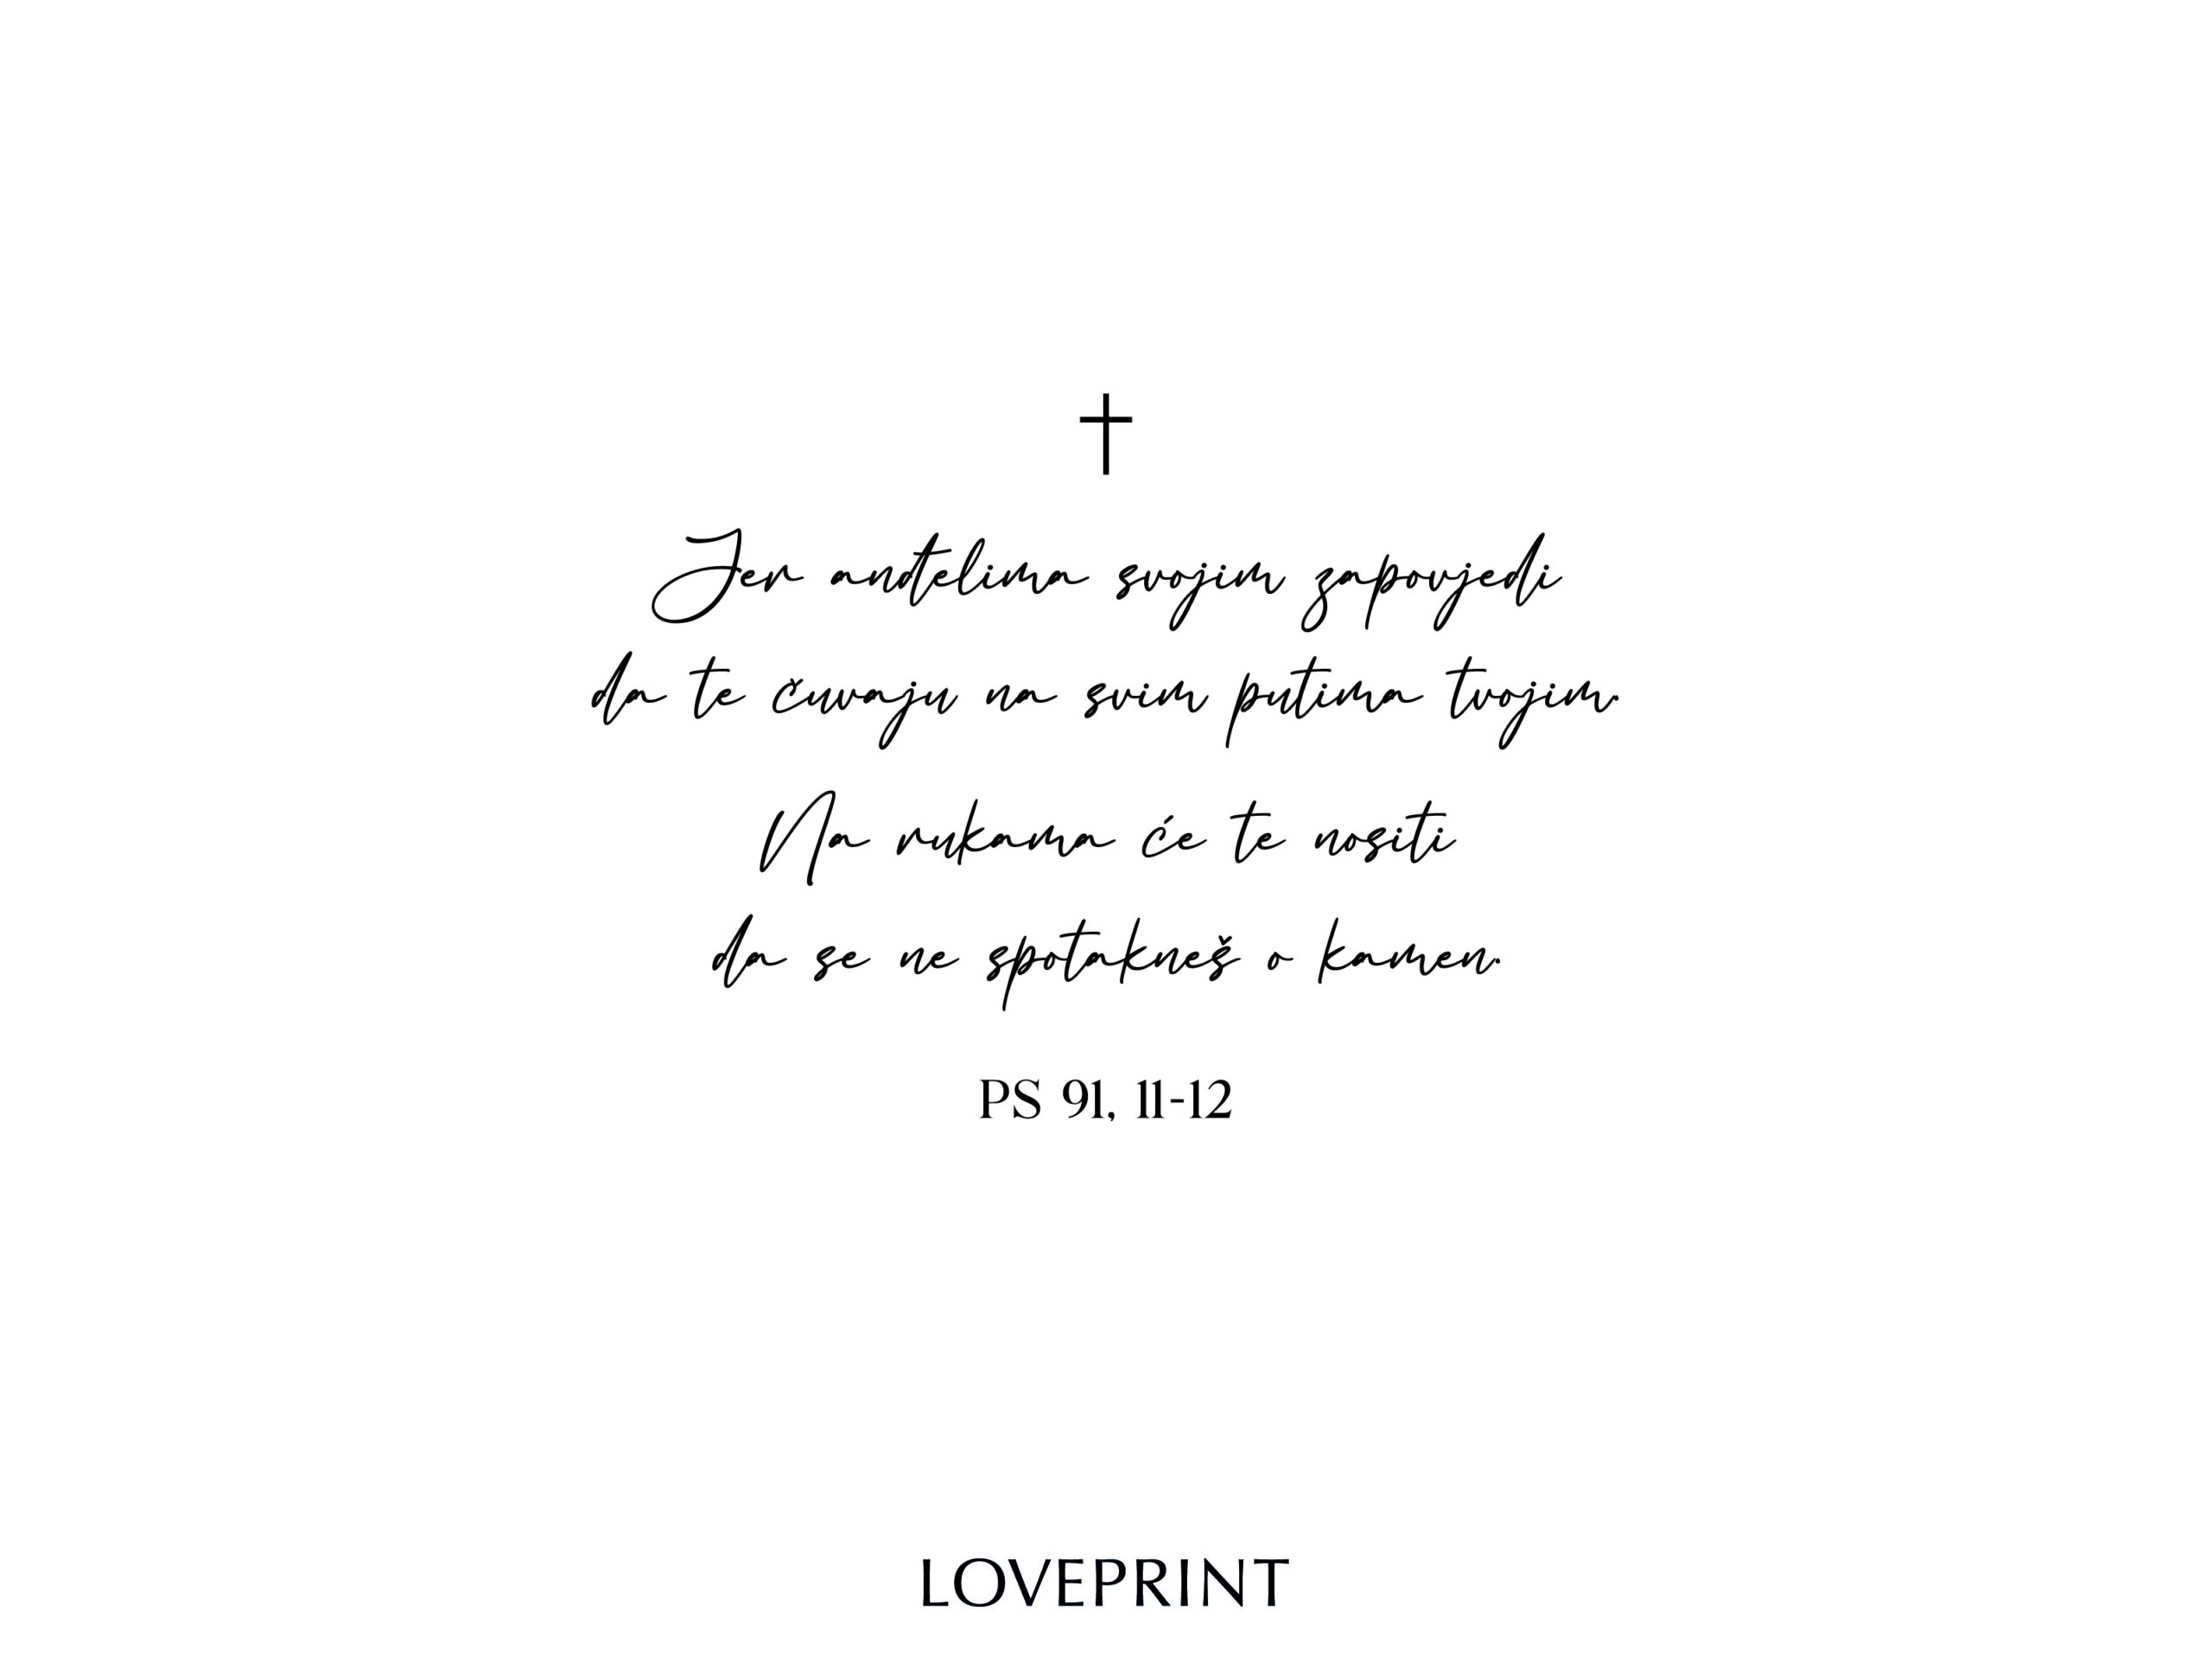 Jer anđelima svojim zapovjedi
da te čuvaju na svim putima tvojim.
Na rukama će te nositi
da se ne spotakneš o kamen.
PS 91, 11-12
LOVEPRINT